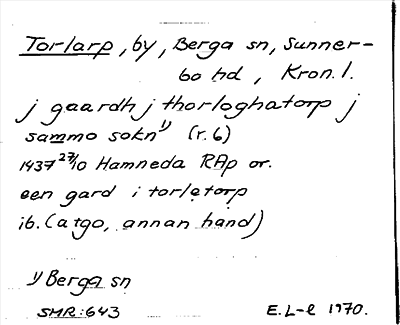 Torlarp, by, Berga sn, Sunner-
bo hd, Kron. l.
j gaardh j thorloghatorp j
sammo sokn¹⁾ (r. 6)
1437 27/10 Hamneda RAp or.
een gard i torlętorp
ib. (atgo, annan hand)
1) Berga sn
SMR: 643 E. L-l 1970.